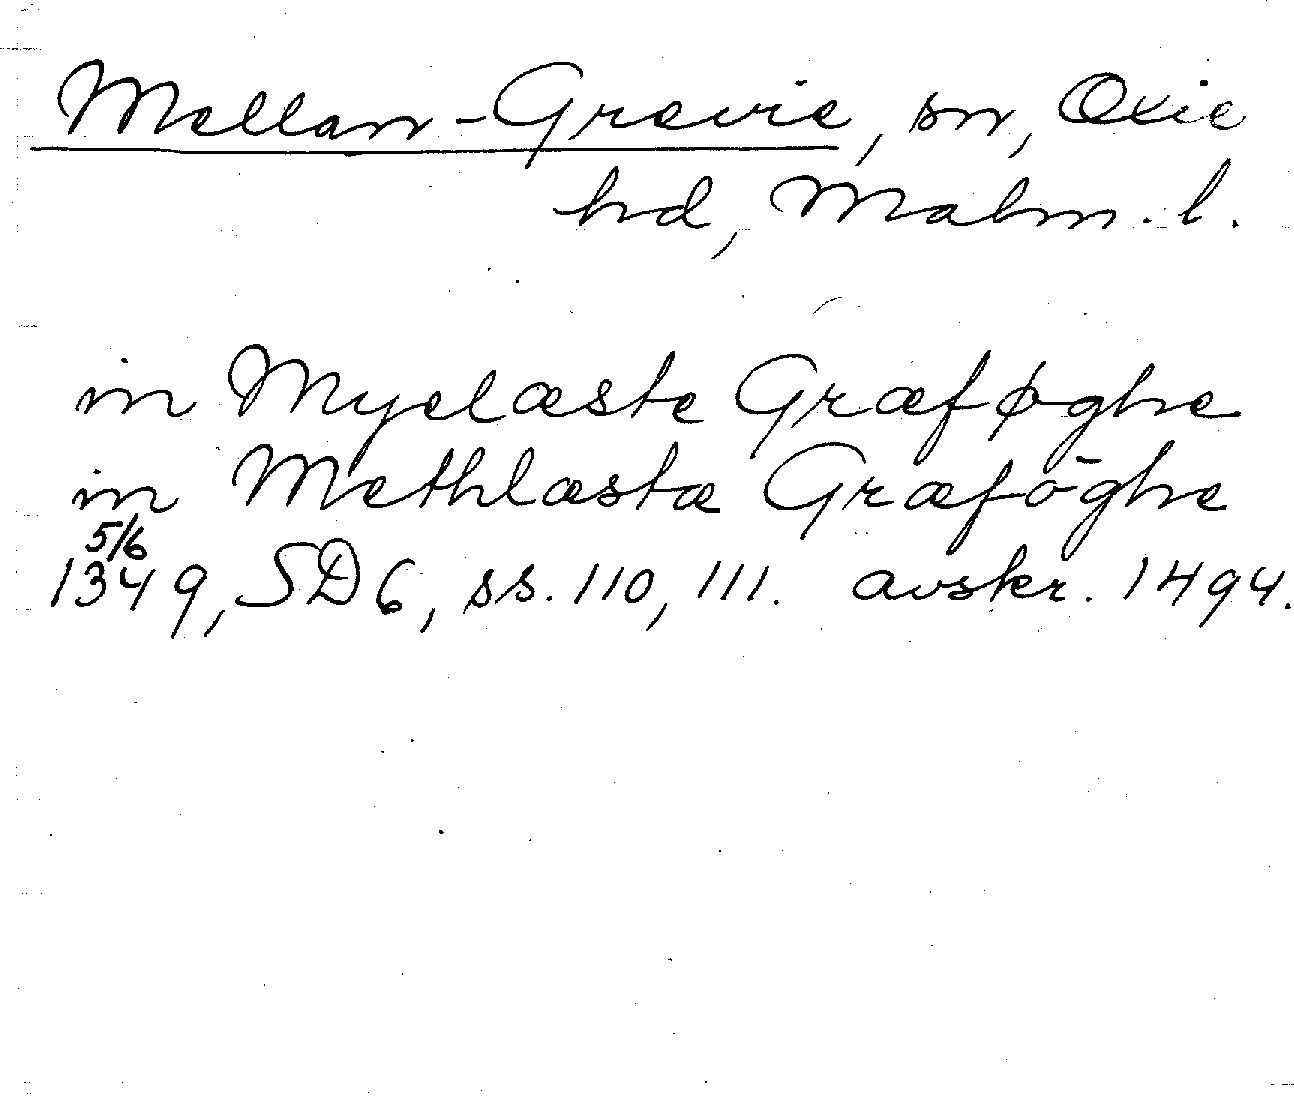 Mellan-Grevie, sn, Oxie
hd, Malm. l.
in Myelæste Græføghe
in Methlæstæ Græfōghe
5/6
1349, SD 6, ss. 110, 111. avskr. 1494.